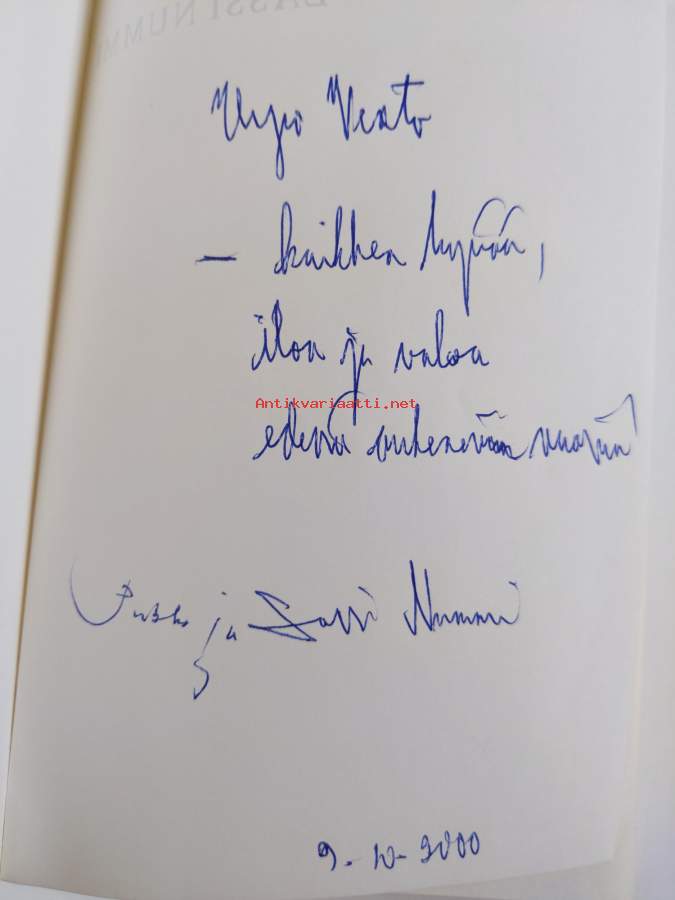 LASSI NUMMI
Urpo Vento
– kaikkea hyvää,
iloa ja valoa
Antikvariaatti.net
edessä aukeneviin vuosiin
Pirkko ja Lassi Nummi
9.10.2000